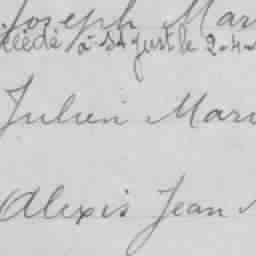 Joseph Mar
décédé à St Just le 2-4-
Julien Mari
Alexis Jean